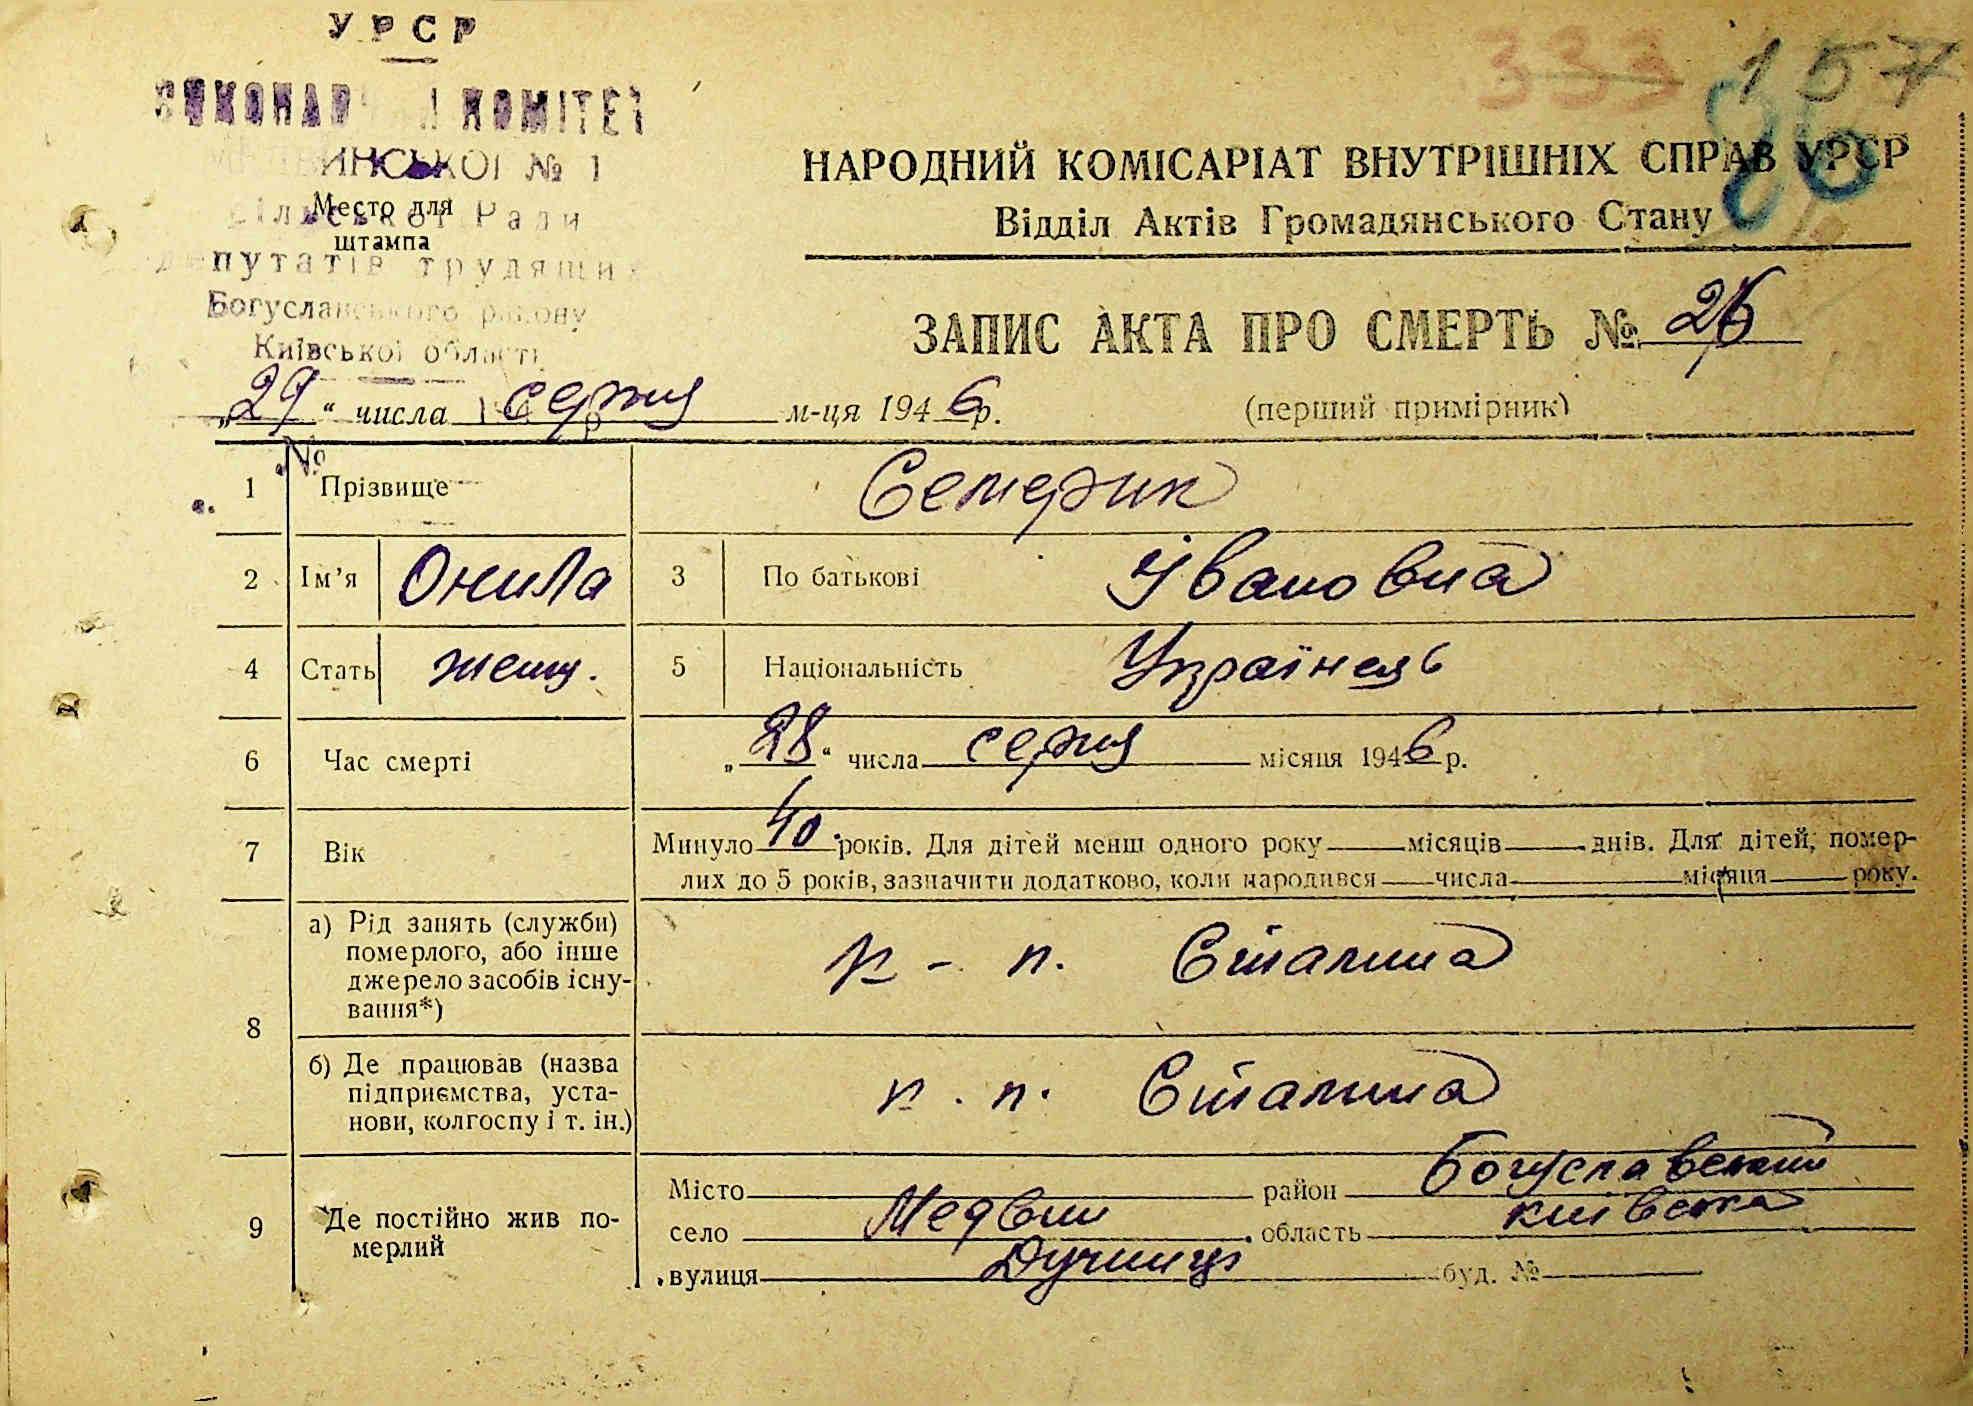 УРСР
ВИКОНАВЧИЙ КОМІТЕТ
МЕДВИНСЬКОЇ № 1
Сільської Ради
депутатів трудящих
Богуславського району
Київської області
Место для
штампа
333 157
86
НАРОДНИЙ КОМІСАРІАТ ВНУТРІШНІХ СПРАВ УРСР
Відділ Актів Громадянського Стану
ЗАПИС АКТА ПРО СМЕРТЬ № 26
„29“ числа серпня м-ця 1946 р.
(перший примірник)
№
1 Прізвище Семерик
2 Ім’я Онила 3 По батькові Івановна
4 Стать женщ. 5 Національність Українець
6 Час смерті „28“ числа серпня місяця 1946 р.
7 Вік Минуло 40 років. Для дітей менш одного року місяців днів. Для дітей, помер-
лих до 5 років, зазначити додатково, коли народився числа місяця року.
8 а) Рід занять (служби)
померлого, або інше
джерело засобів існу-
вання*)
к - п. Сталина
б) Де працював (назва
підприємства, уста-
нови, колгоспу і т. ін.)
к. п. Сталина
9 Де постійно жив по-
мерлий
Місто район Богуславський
село Медвин область київська
вулиця буд. №